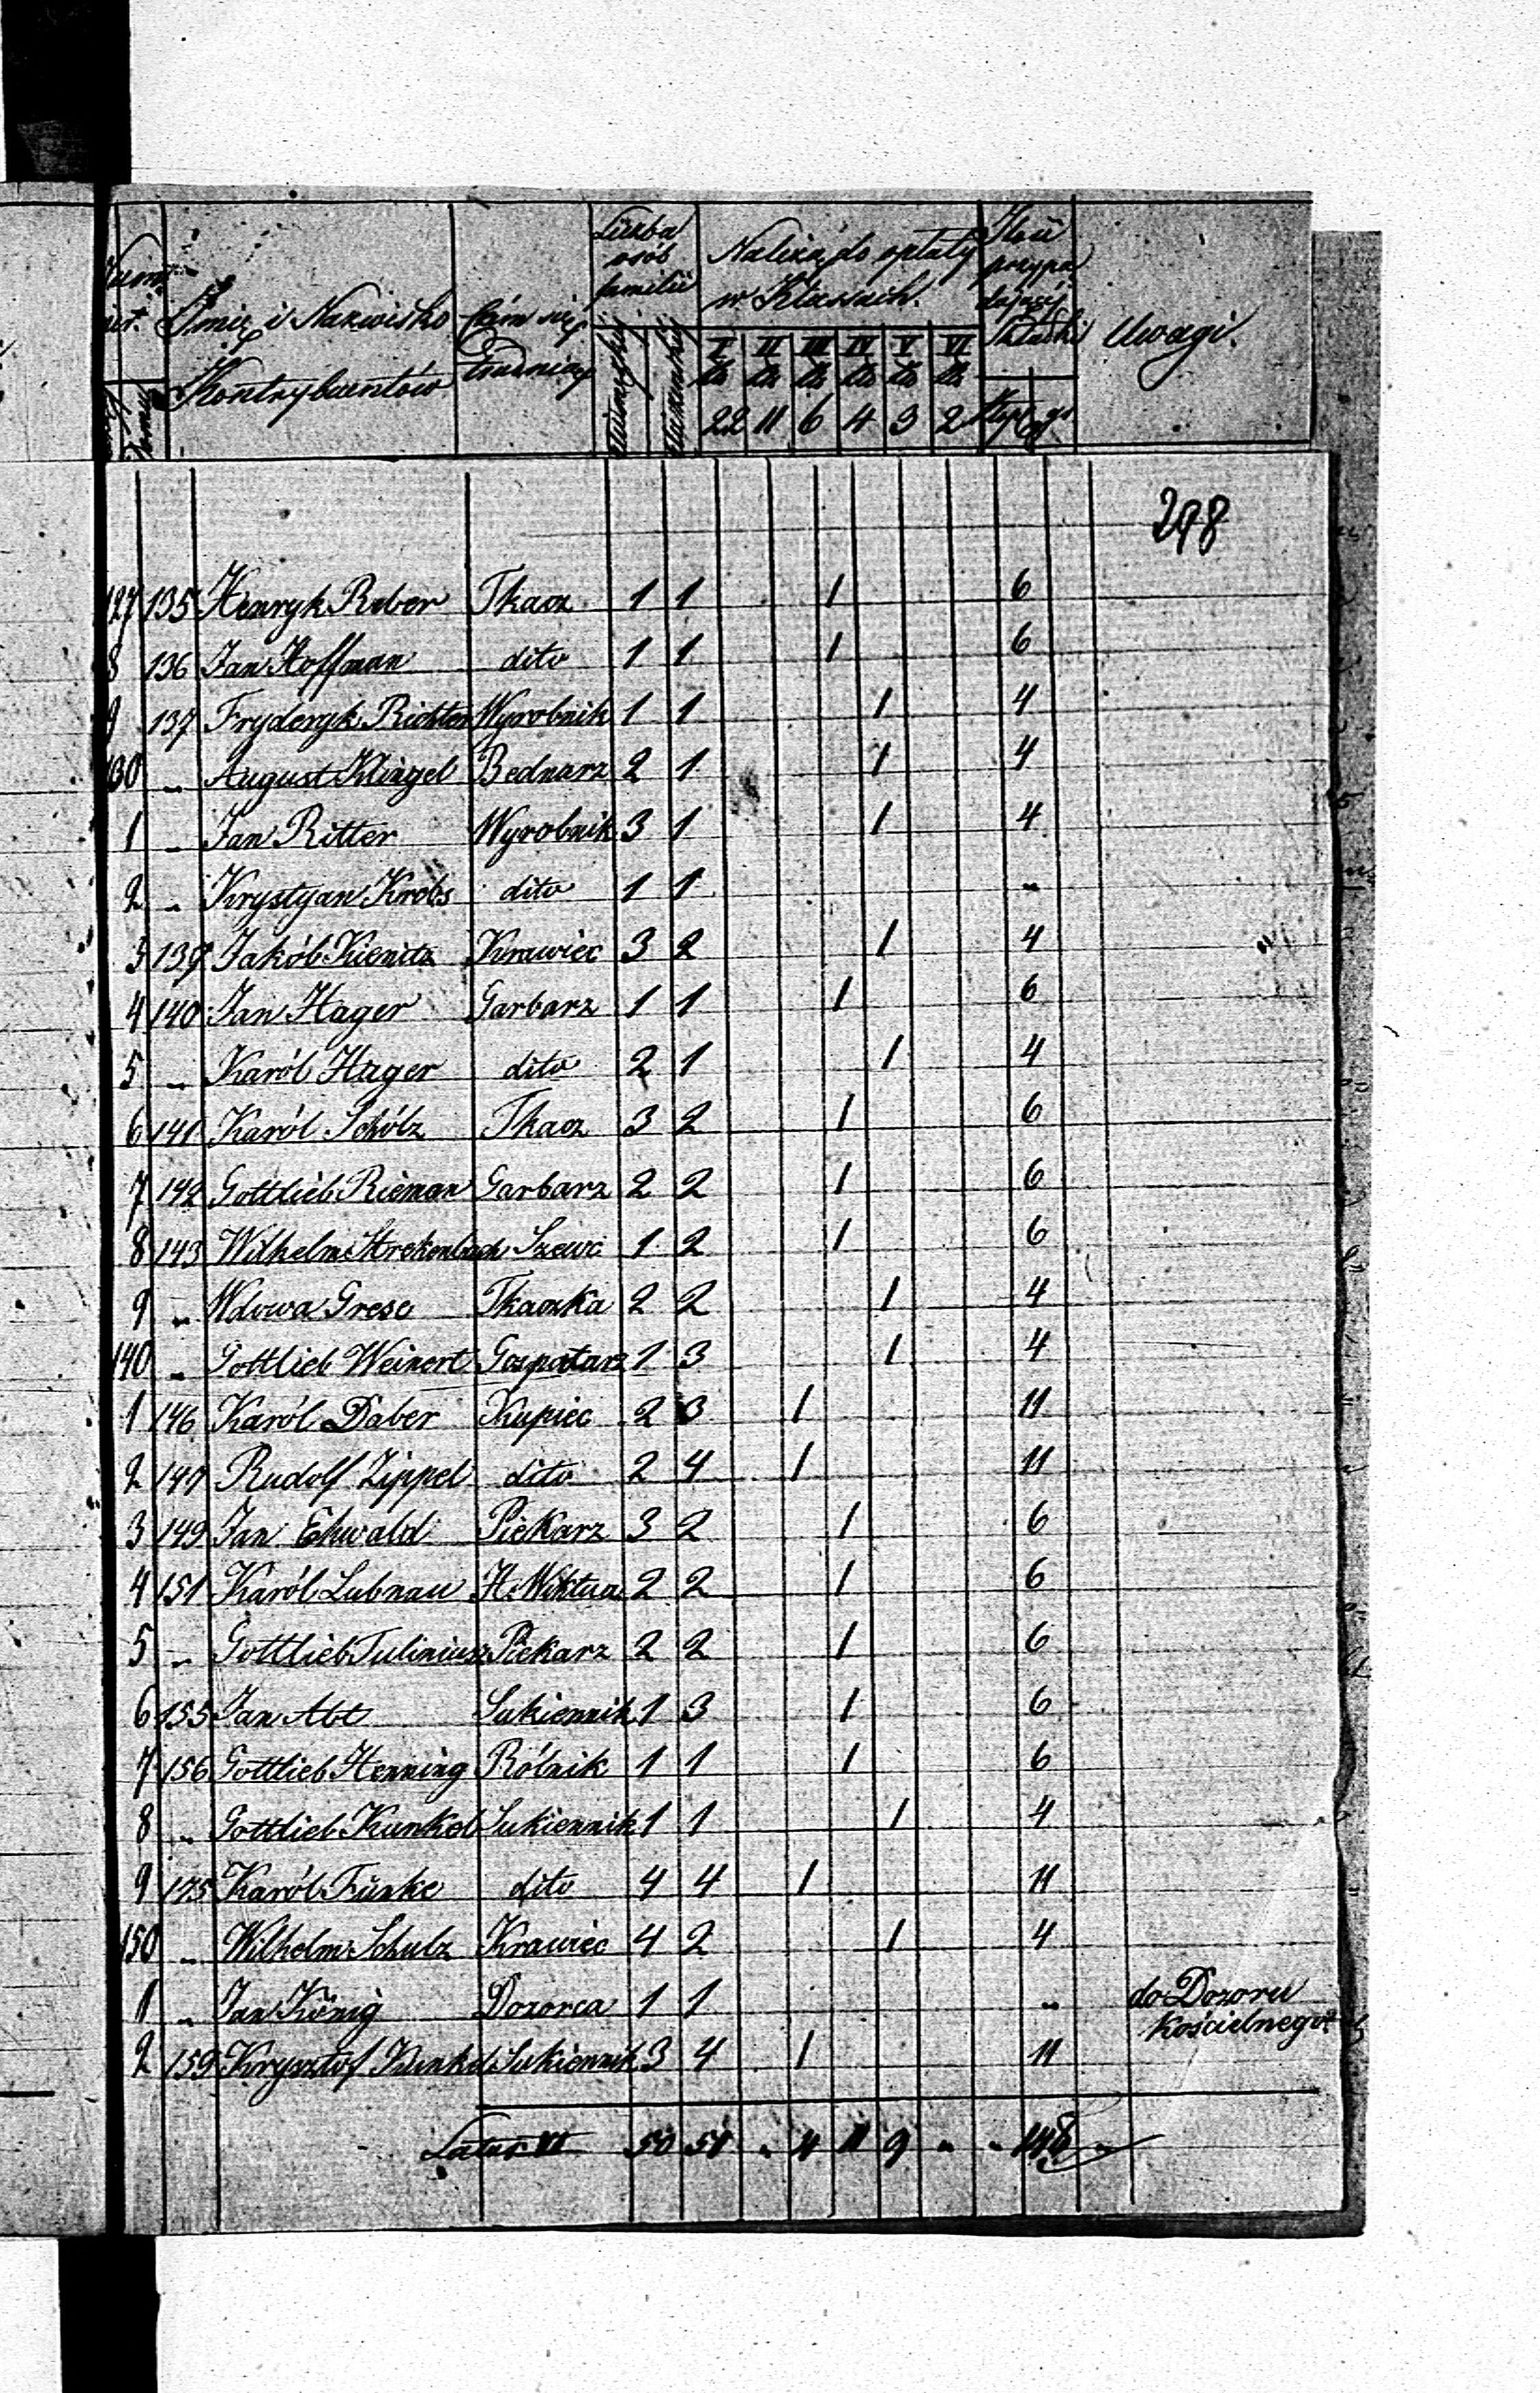 Imię i Nazwisko Kontrybuentów
Czém się trudnią
Liczba osób familii
Należą do opłaty w Klassach.
Uwagi.
I II III IV V VI
22 11 6 4 3 2
298
127 135 Henryk Reber Tkacz 1 1 1 6
8 136 Jan Hoffman dito 1 1 1 6
9 137 Fryderyk Richter Wyrobnik 1 1 1 4
130 „ August Klingel Bednarz 2 1 1 4
1 „ Jan Ritter Wyrobnik 3 1 1 4
2 „ Krystyan Krebs dito 1 1 „
3 139 Jakób Kienitz Krawiec 3 2 1 4
4 140 Jan Hager Garbarz 1 1 1 6
5 „ Karól Hager dito 2 1 1 4
6 141 Karól Schólz Tkacz 3 2 1 6
7 142 Gottlieb Rieman Garbarz 2 2 1 6
8 143 Wilhelm Strekenbach Szewc 1 2 1 6
9 „ Wdowa Grese Tkaczka 2 2 1 4
140 „ Gottlieb Weinert 1 3 1 4
1 146 Karól Daber Kupiec 2 3 1 11
2 147 Rudolf Zippel dito 2 4 1 11
3 149 Jan Ehwald Piekarz 3 2 1 6
4 151 Karól Lubnau H. Wiktua 2 2 1 6
5 „ Gottlieb Juliniusz Piekarz 2 2 1 6
6 155 Jan Abt Sukiennik 1 3 1 6
7 156 Gottlieb Henning Rólnik 1 1 1 6
8 „ Gottlieb Kunkel Sukiennik 1 1 1 4
9 175 Karól Funke dito 4 4 1 11
150 „ Wilhelm Schulz Krawiec 4 2 1 4
1 „ Jan König Dozorca 1 1 „ do Dozoru kościelnego
2 159 Krysztof Kunkel Sukiennik 3 4 1 11
Latus 50 51 „ 4 11 9 „ „ 148 „